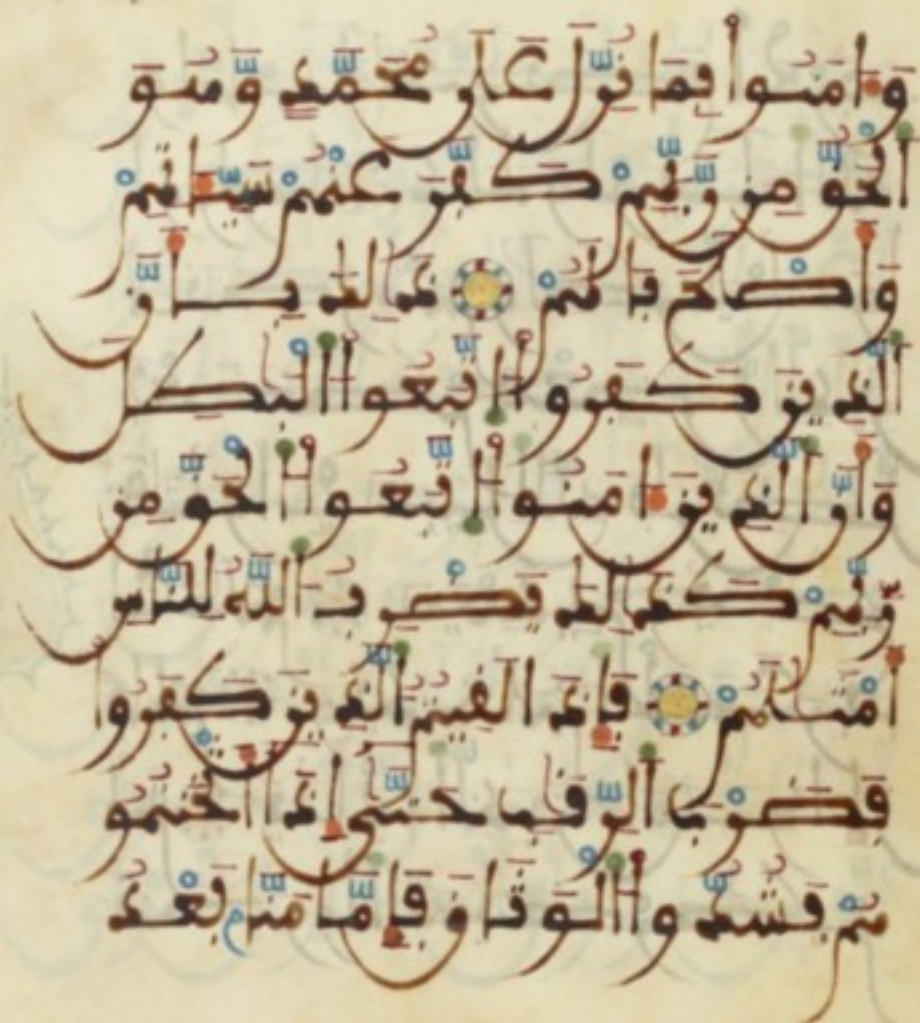 وَءَامَنُوا۟ بِمَا نُزِّلَ عَلَىٰ مُحَمَّدٍ وَهُوَ
ٱلْحَقُّ مِن رَّبِّهِمْ كَفَّرَ عَنْهُمْ سَيِّـَٔاتِهِمْ
وَأَصْلَحَ بَالَهُمْ ذَٰلِكَ بِأَنَّ
ٱلَّذِينَ كَفَرُوا۟ ٱتَّبَعُوا۟ ٱلْبَٰطِلَ
وَأَنَّ ٱلَّذِينَ ءَامَنُوا۟ ٱتَّبَعُوا۟ ٱلْحَقَّ مِن
رَّبِّهِمْ كَذَٰلِكَ يَضْرِبُ ٱللَّهُ لِلنَّاسِ
أَمْثَٰلَهُمْ فَإِذَا لَقِيتُمُ ٱلَّذِينَ كَفَرُوا۟
فَضَرْبَ ٱلرِّقَابِ حَتَّىٰ إِذَا أَثْخَنتُمُو
هُمْ فَشُدُّوا۟ ٱلْوَثَاقَ فَإِمَّا مَنًّا بَعْدُ